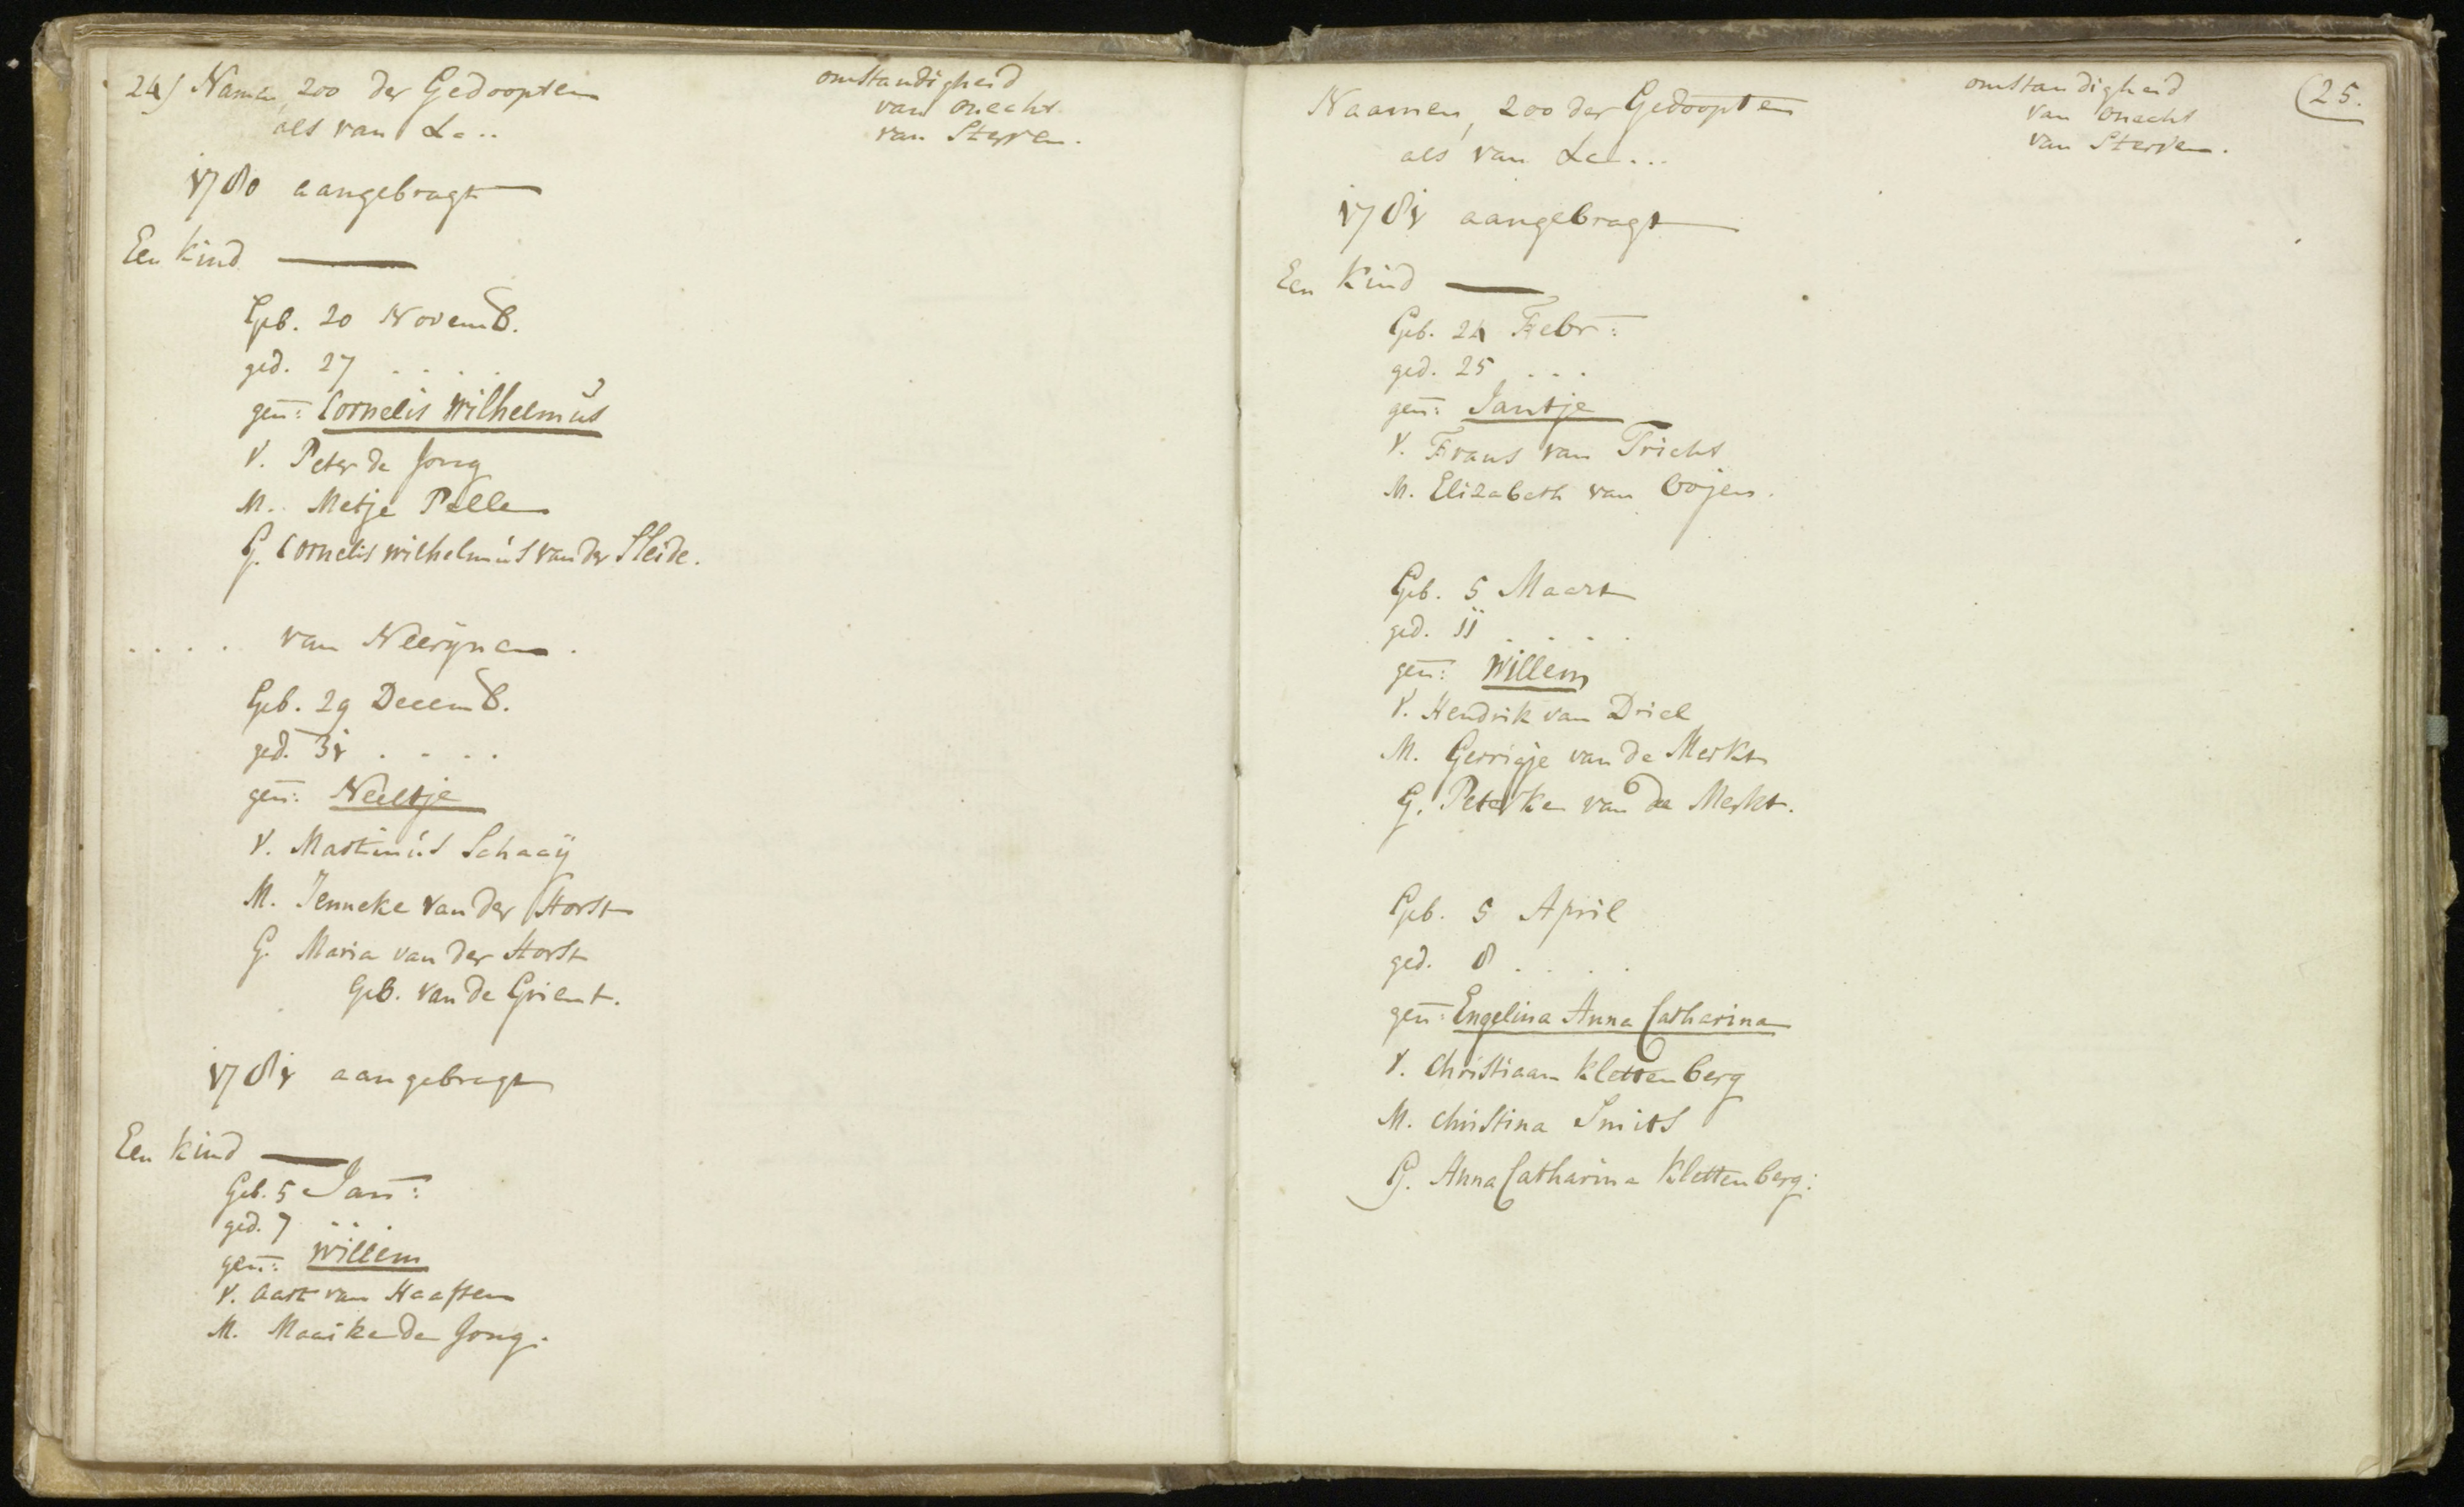 24) Namen, zoo der Gedoopten
als van de ..
omstandigheid
van onecht
van Sterven.
1780 aangebragt
Een kind
Geb. 20 Novemb.
ged. 27 . . . .
gen: Cornelis Wilhelmús
V. Peter de Jong
M. Metje Pelle
G. Cornelis Wilhelmús van der Sleide.
. . . . van Neerijnen.
Geb. 29 Decemb.
ged. 31 . . . .
gen: Neeltje
V. Martinús Schaaij
M. Jenneke van der Horst
G. Maria van der Horst
Geb. van de Grient.
1781 aangebragt
Een kind
Geb. 5 Jan:
ged. 7 . . .
gen: Willem
V. Aart van Haaften
M. Maaike de Jong.
Naamen, zoo der Gedoopten
als van de ...
omstandigheid
van onecht
van Sterven.
(25.
1781 aangebragt
Een Kind
Geb. 24 Febr:
ged. 25 . . .
gen: Jantje
V. Frans van Tricht
M. Elizabeth van Ooijen.
Geb. 5 Maart
ged. 11 . . . .
gen: Willem
V. Hendrik van Driel
M. Gerrigje van de Merkt
G. Peterke van de Merkt.
Geb. 5 April
ged. 8 . . . .
gen: Engelina Anna Catharina
V. Christiaan Klettenberg
M. Christina Smits
G. Anna Catharina Klettenberg.